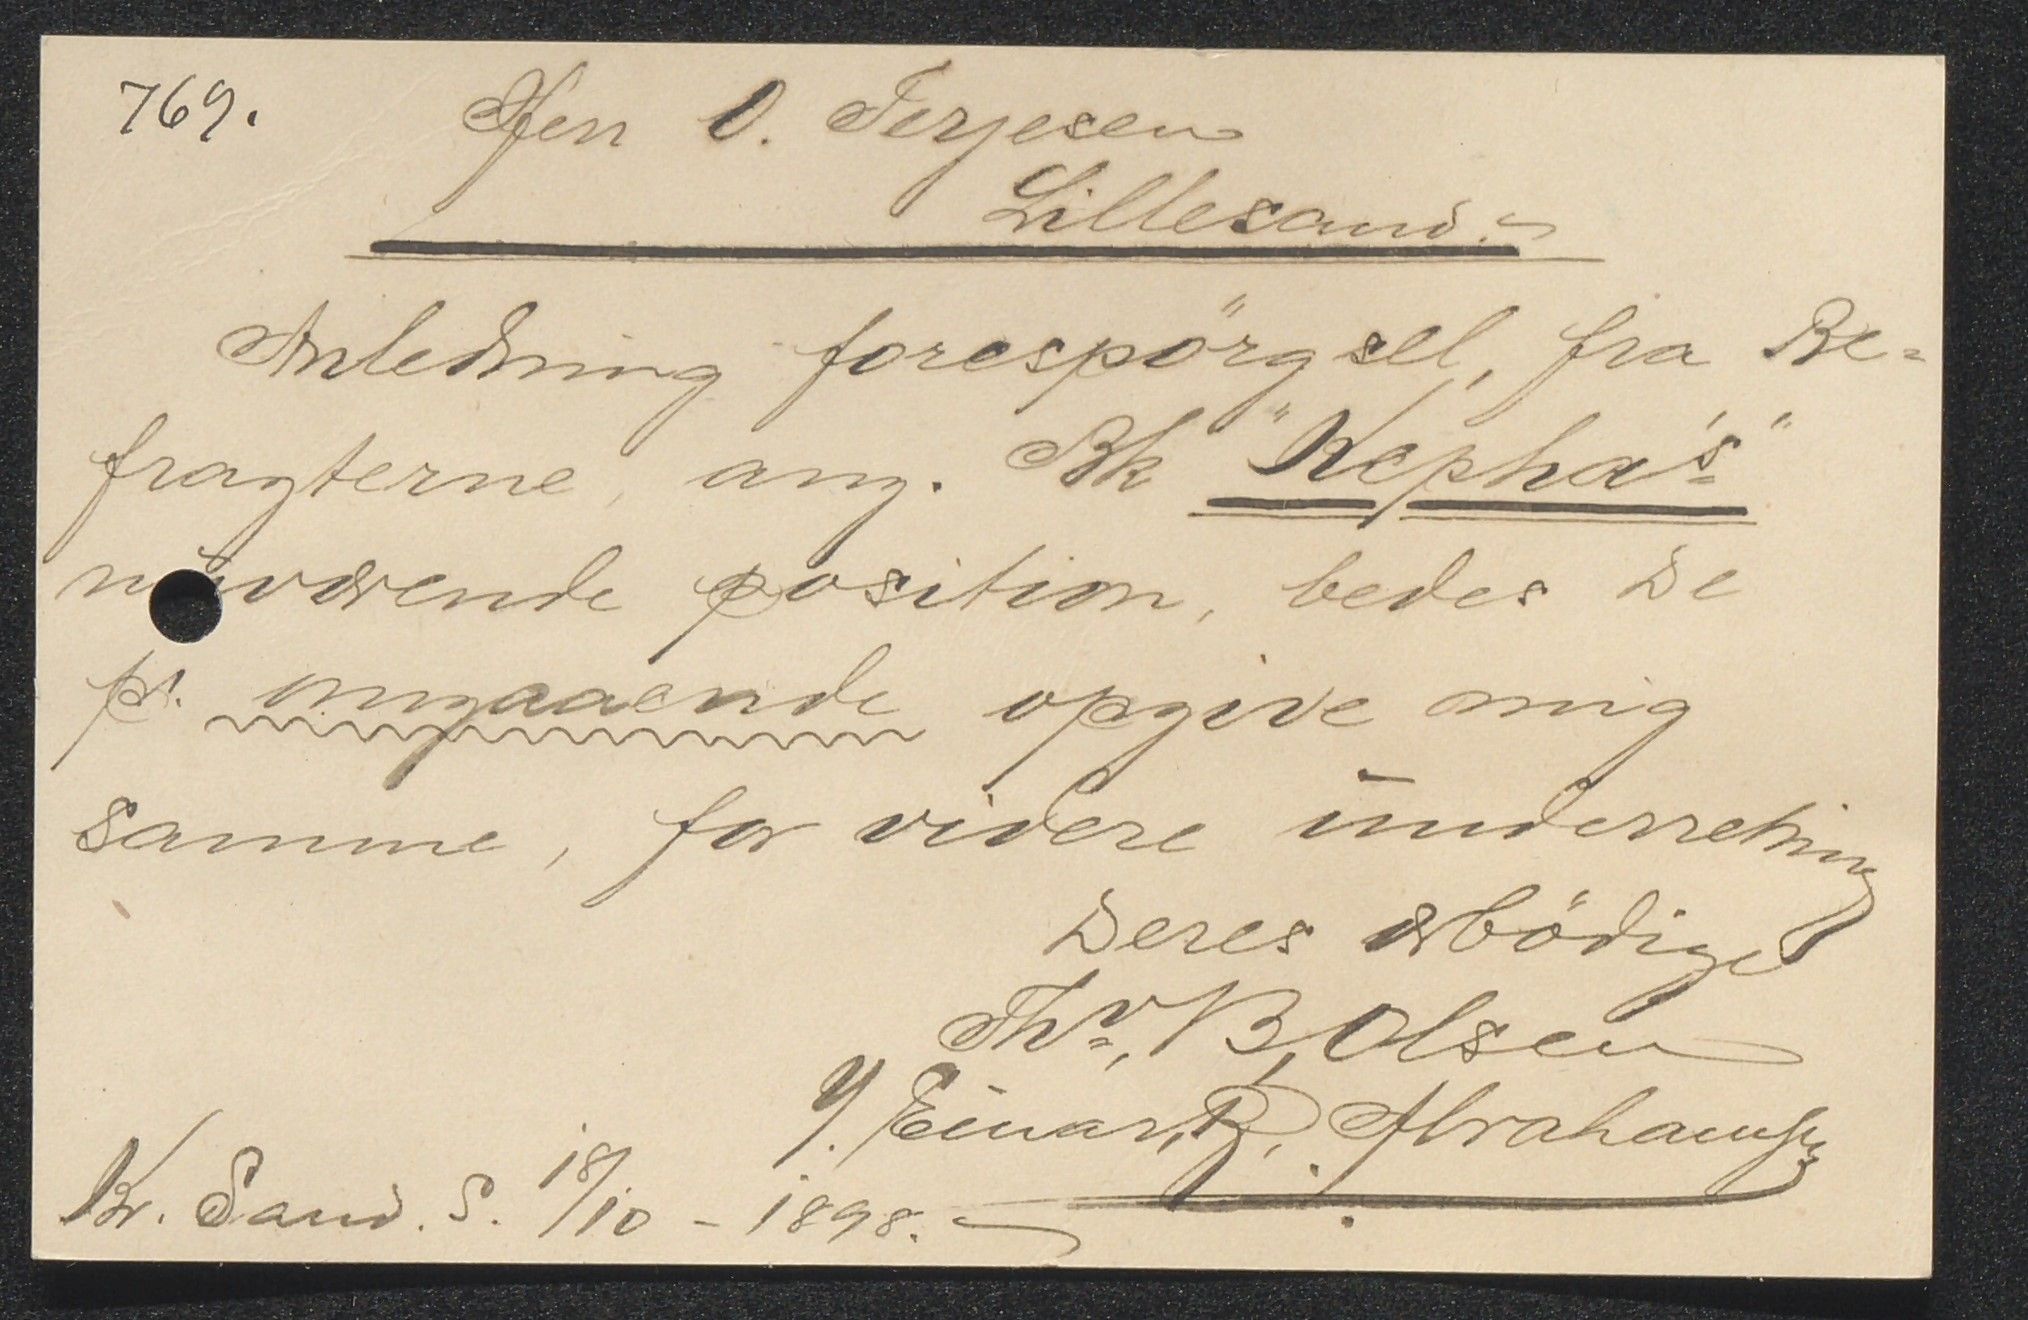 769.
Herr O. Terjesen
Lillesand.
Anledning forespörgsel, fra Be-
fragterne, ang. Bk "Kepha's"
nuværende position, bedes De
pr. omgaaende opgive mig
samme, for videre underretning
Deres ærbödige
Thv., B, Olsen
Einar, B, Abrahamsen
Kr. Sand. S. 18/10 - 1898.